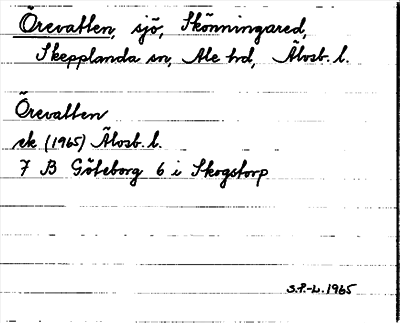 Örevatten, sjö, Skönningared,
Skepplanda sn, Ale hd, Älvsb. l.
Örevatten
ek (1965) Älvsb. l.
7 B Göteborg 6 i Skogstorp
S.P.-L. 1965